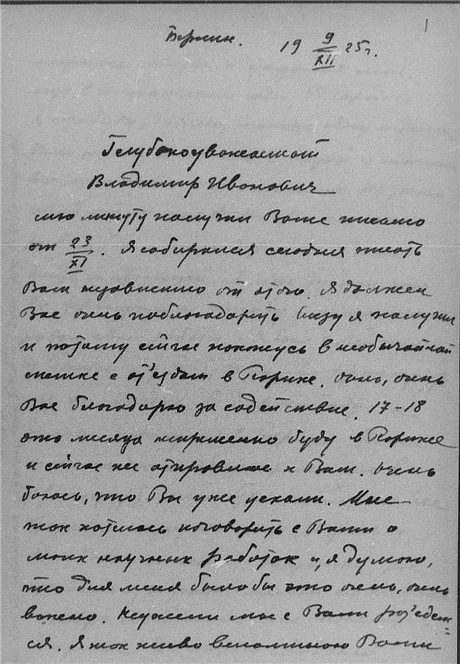 1
Берлин. 19 9/XII 25г.
Глубокоуважаемый
Владимир Иванович
сию минуту получил Ваше письмо
от 23/XI. Я собирался сегодня писать
Вам независимо от этого. Я должен
Вас очень поблагодарить визу я получил
и потому сейчас нахожусь в необычайной
спешке с от'ездом в Париж. Очень, очень
Вас благодарю за содействие. 17-18
это месяца непременно буду в Париже
и сейчас же отправляюсь к Вам. Очень
боюсь, что Вы уже уехали. Мне
так хотелось поговорить с Вами о
моих научных работах и, я думаю,
что для меня было бы это очень, очень
важно. Неужели мы с Вами раз'едем=
ся. Я так живо вспоминаю Ваши